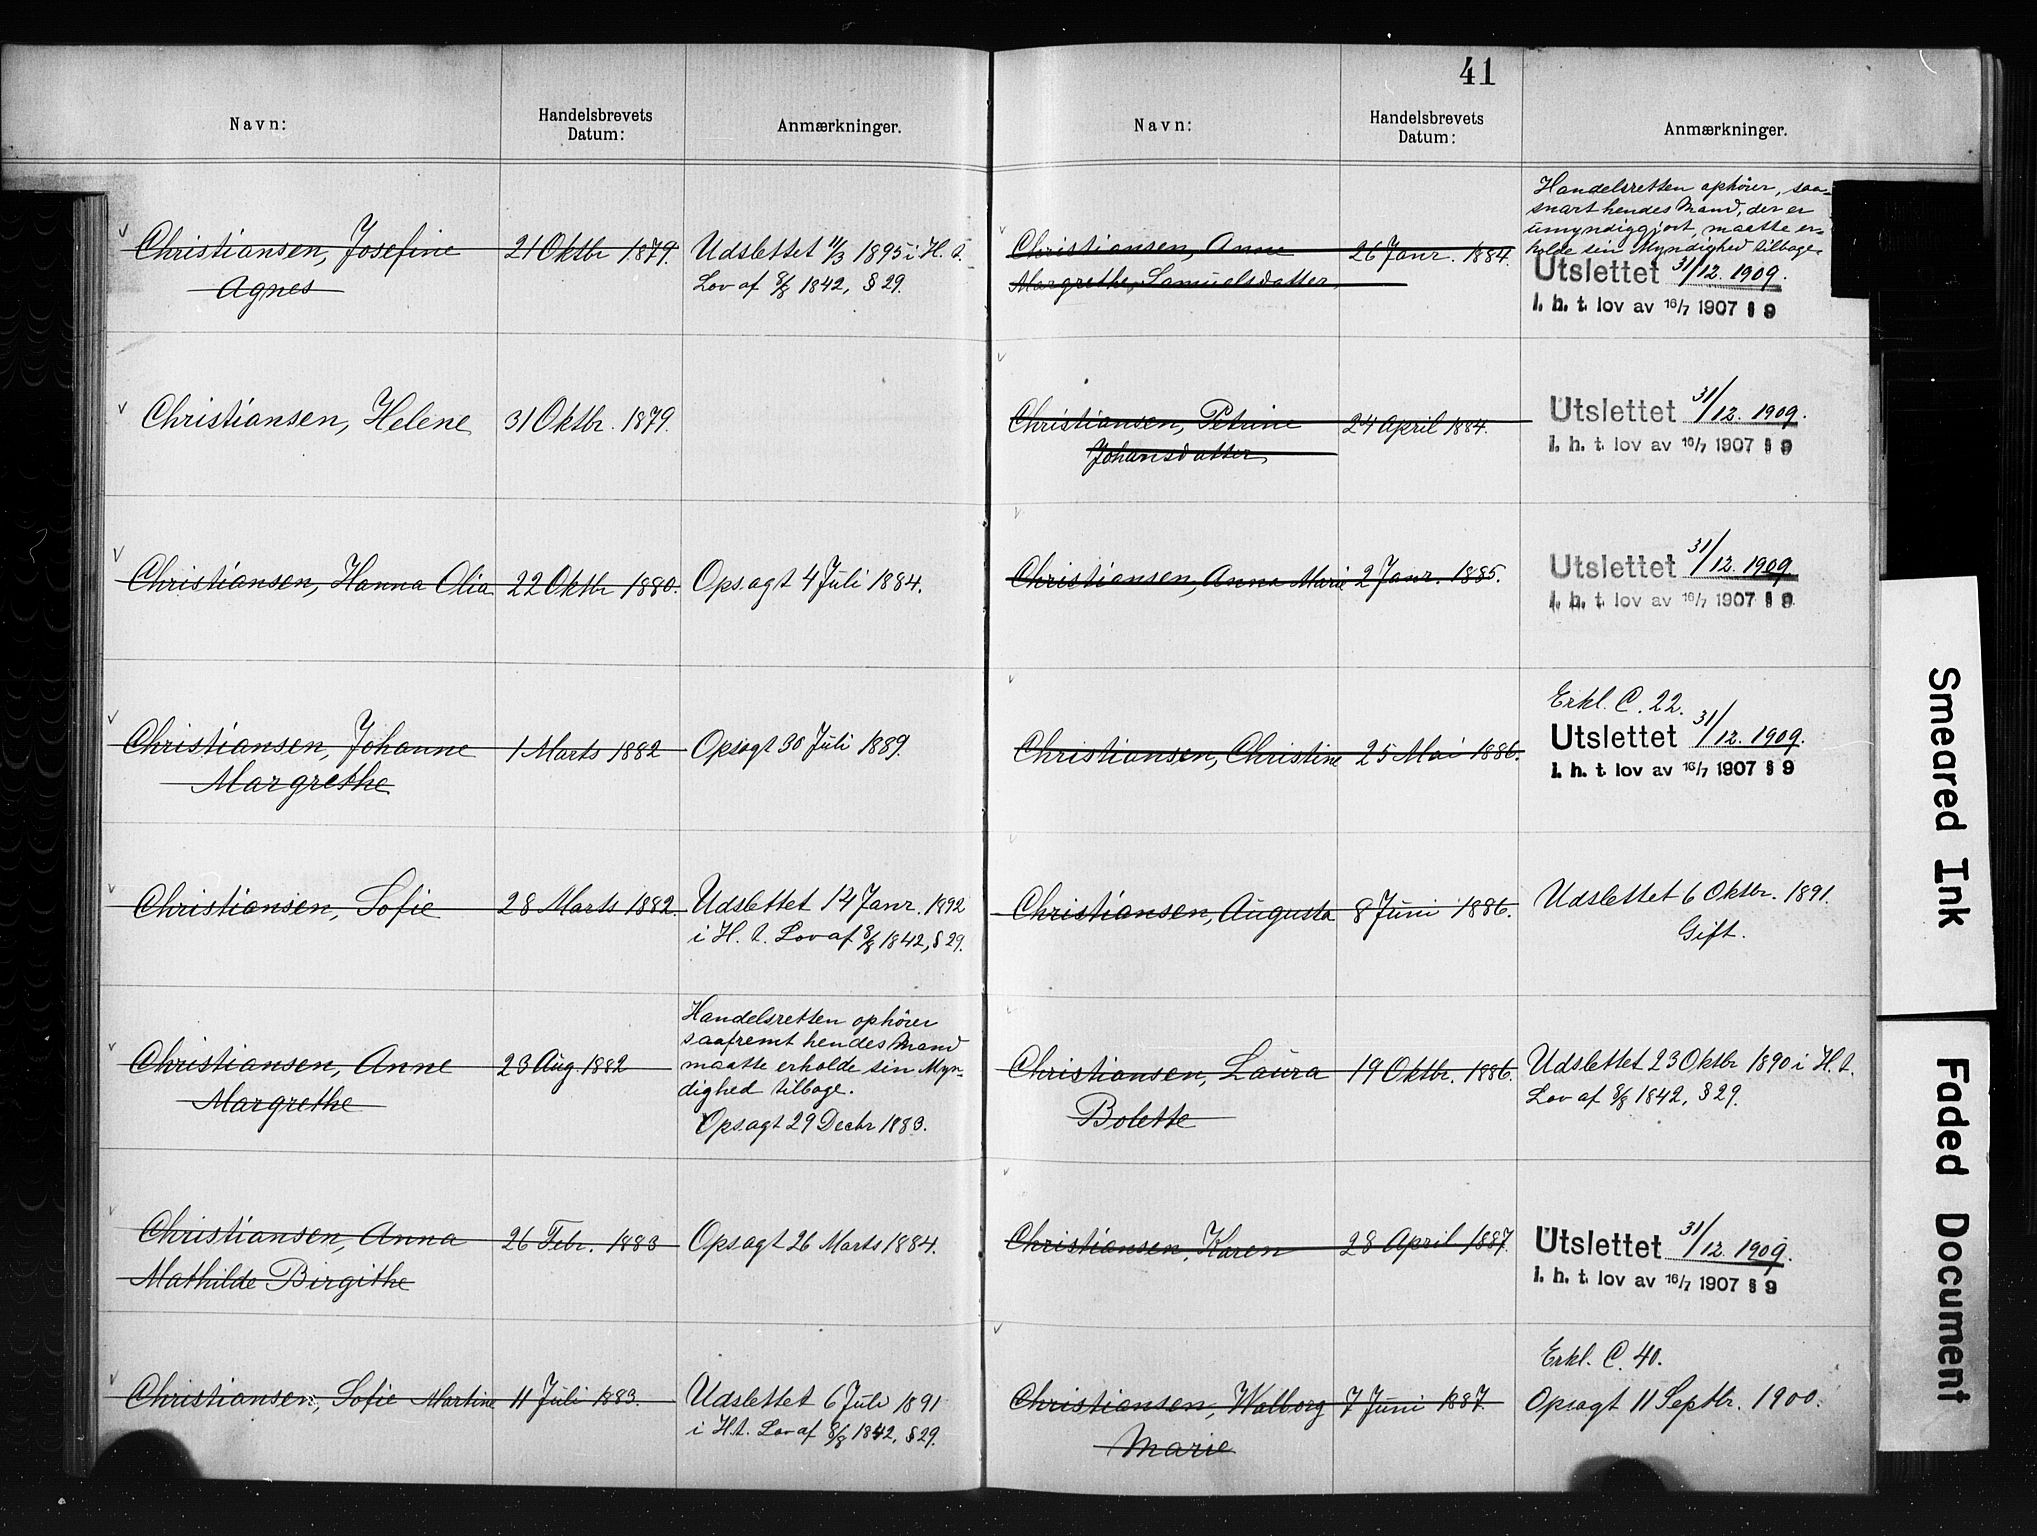 Navn:
Handelsbrevets
Datum:
Anmærkninger.
Christiansen, Josefine 21 Oktbr 1879. Udslettet 11/3 1895 i H. t.
Agnes Lov af 8/8 1842, § 29.
Christiansen, Helene 31 Oktbr. 1879.
Christiansen, Hanna Olia 22 Oktbr 1880. Opsagt 4 Juli 1884.
Christiansen, Johanne 1 Marts 1882 Opsagt 30 Juli 1889.
Margrethe
Christiansen, Sofie 28 Marts 1882 Udslettet 14 Janr. 1892
i H. t. Lov af 8/8 1842, § 29.
Handelsretten ophører
saafremt hendes Mand
Christiansen, Anne 23 Aug 1882 maatte erholde sin Myn-
Margrethe dighed tilbage.
Opsagt 29 Decbr 1883.
Christiansen, Anna 26 Febr. 1883 Opsagt 26 Marts 1884.
Mathilde Birgithe
Christiansen, Sofie Martine 11 Juli 1883. Udslettet 6 Juli 1891
i H.t. Lov af 8/8 1842, § 29.
41
Navn:
Handelsbrevets
Datum:
Anmærkninger.
Handelsretten ophører, saa-
snart hendes Mand, der er
umyndiggjort, maatte er-
Christiansen, Anne 26 Janr. 1884. holde sin Myndighed tilbage.
Margrethe, Samuelsdatter, Utslettet 31/12. 1909.
i. h. t. lov av 16/7 1907 § 9
Christiansen, Petrine 24 April 1884. Utslettet 31/12. 1909.
Johansdatter, i. h. t. lov av 16/7 1907 § 9
Christiansen, Anna Marie 2 Janr. 1885. Utslettet 31/12. 1909
i. h. t. lov av 16/7 1907 § 9
Erkl. C. 22.
Christiansen, Christine 25 Mai 1886. Utslettet 31/12. 1909.
i. h. t. lov av 16/7 1907 § 9
Christiansen, Augusta 8 Juni 1886. Udslettet 6 Oktbr. 1891.
Gift.
Christiansen, Laura 19 Oktbr. 1886. Udslettet 23 Oktbr 1890 i H. t.
Bolette Lov af 8/8 1842, § 29.
Christiansen, Karen 28 April 1887. Utslettet 31/12. 1909.
i. h. t. lov av 16/7 1907 § 9
Erkl. C. 40.
Christiansen, Walborg 7 Juni 1887. Opsagt 11 Septbr. 1900.
Marie
Smeared Ink
Faded Document